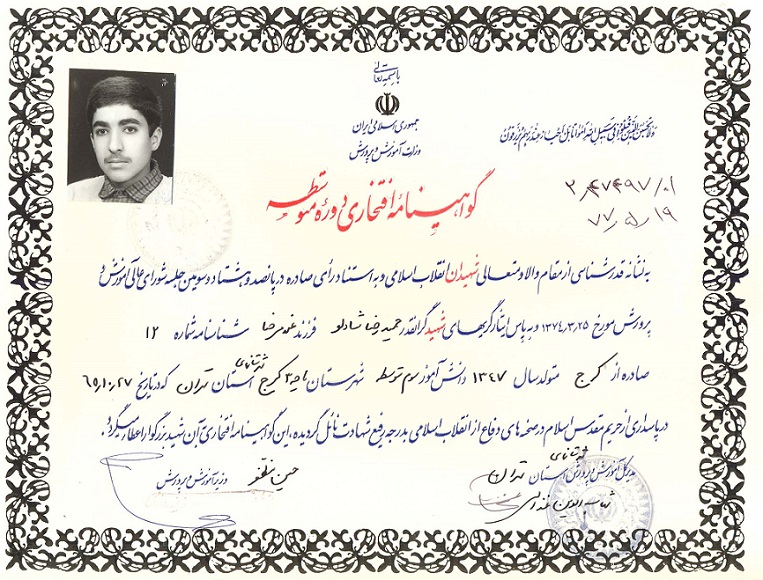 باسمه تعالی
جمهوری اسلامی ایران
وزارت آموزش و پرورش
ولا تحسبن الذین قتلوا فی سبیل الله امواتا بل احیاء عند ربهم یرزقون
گواهینامهٔ افتخاری دورهٔ متوسطه
۷۷/۵/۱۹
به نشانهٔ قدرشناسی از مقام والا و متعالی شهیدان انقلاب اسلامی و به استناد رأی صادره در پانصد و هشتاد و سومین جلسه شورای عالی آموزش و
پرورش مورخ ۱۳۷۴،۳،۲۵ و به پاس ایثارگریهای شهید گرانقدر حمیدرضا شادلو فرزند شناسنامه شماره ۱۲
صادره از کرج متولد سال ۱۳۴۷ دانش آموز سوم متوسطه شهرستان ناحیه ۳ کرج استان تهران که در تاریخ ۶۵،۱۰،۲۷
در پاسداری از حریم مقدس اسلام در صحنه های دفاع از انقلاب اسلامی بدرجه رفیع شهادت نائل گردیده، این گواهینامه افتخاری به آن شهید بزرگوار اعطا میگردد.
مدیر کل آموزش و پرورش استان تهران
حسین مظفر
وزیر آموزش و پرورش